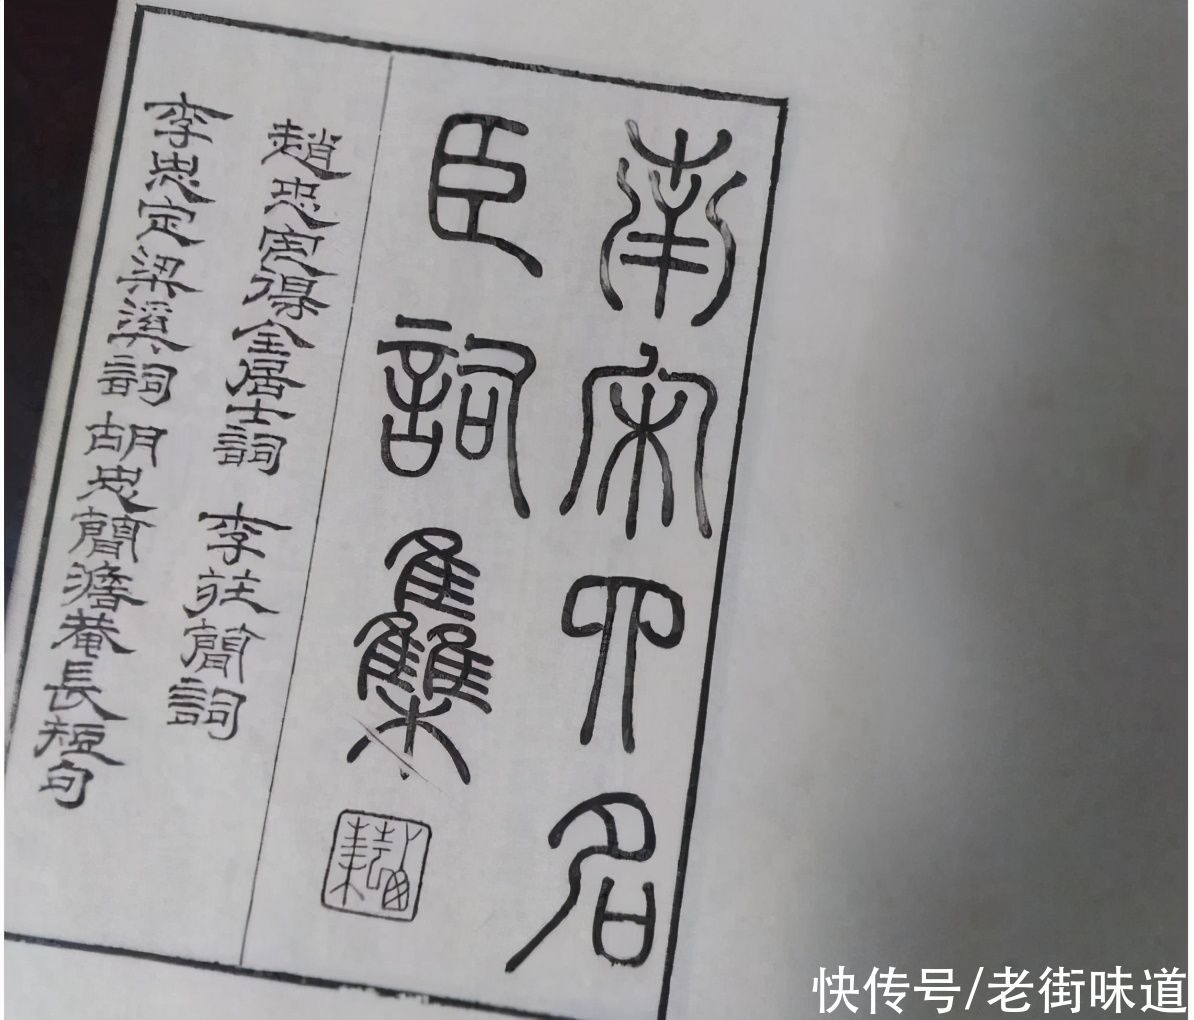 南宋四名
臣詞集
趙忠定得全居士詞 李莊簡詞
李忠定梁溪詞 胡忠簡澹菴長短句
快传号/老街味道